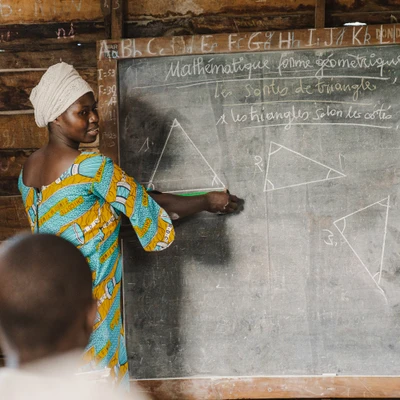 Aa Bb Cc Dd Ee Ff Gg Hh Ii Jj Kk
Mathématique forme géométrique
Les sortes de triangles
les triangles selon les cotés
1
2
3